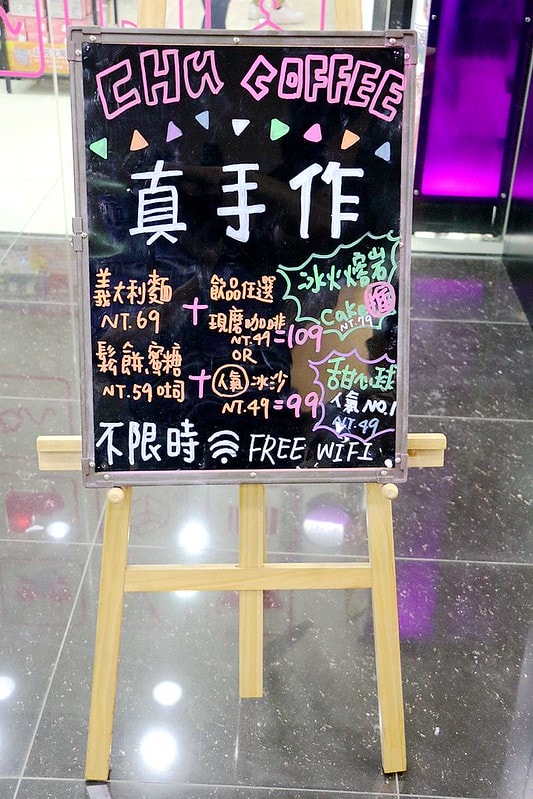 CHU COFFEE
真手作
義大利麵
NT.69
+
飲品任選
現磨咖啡
NT.49
=109
OR
鬆餅, 蜜糖
NT.59 吐司
+
人氣 冰沙
NT.49
=99
冰火熔岩
cake
NT.79
甜心球
人氣 NO.1
NT.49
不限時 FREE WIFI